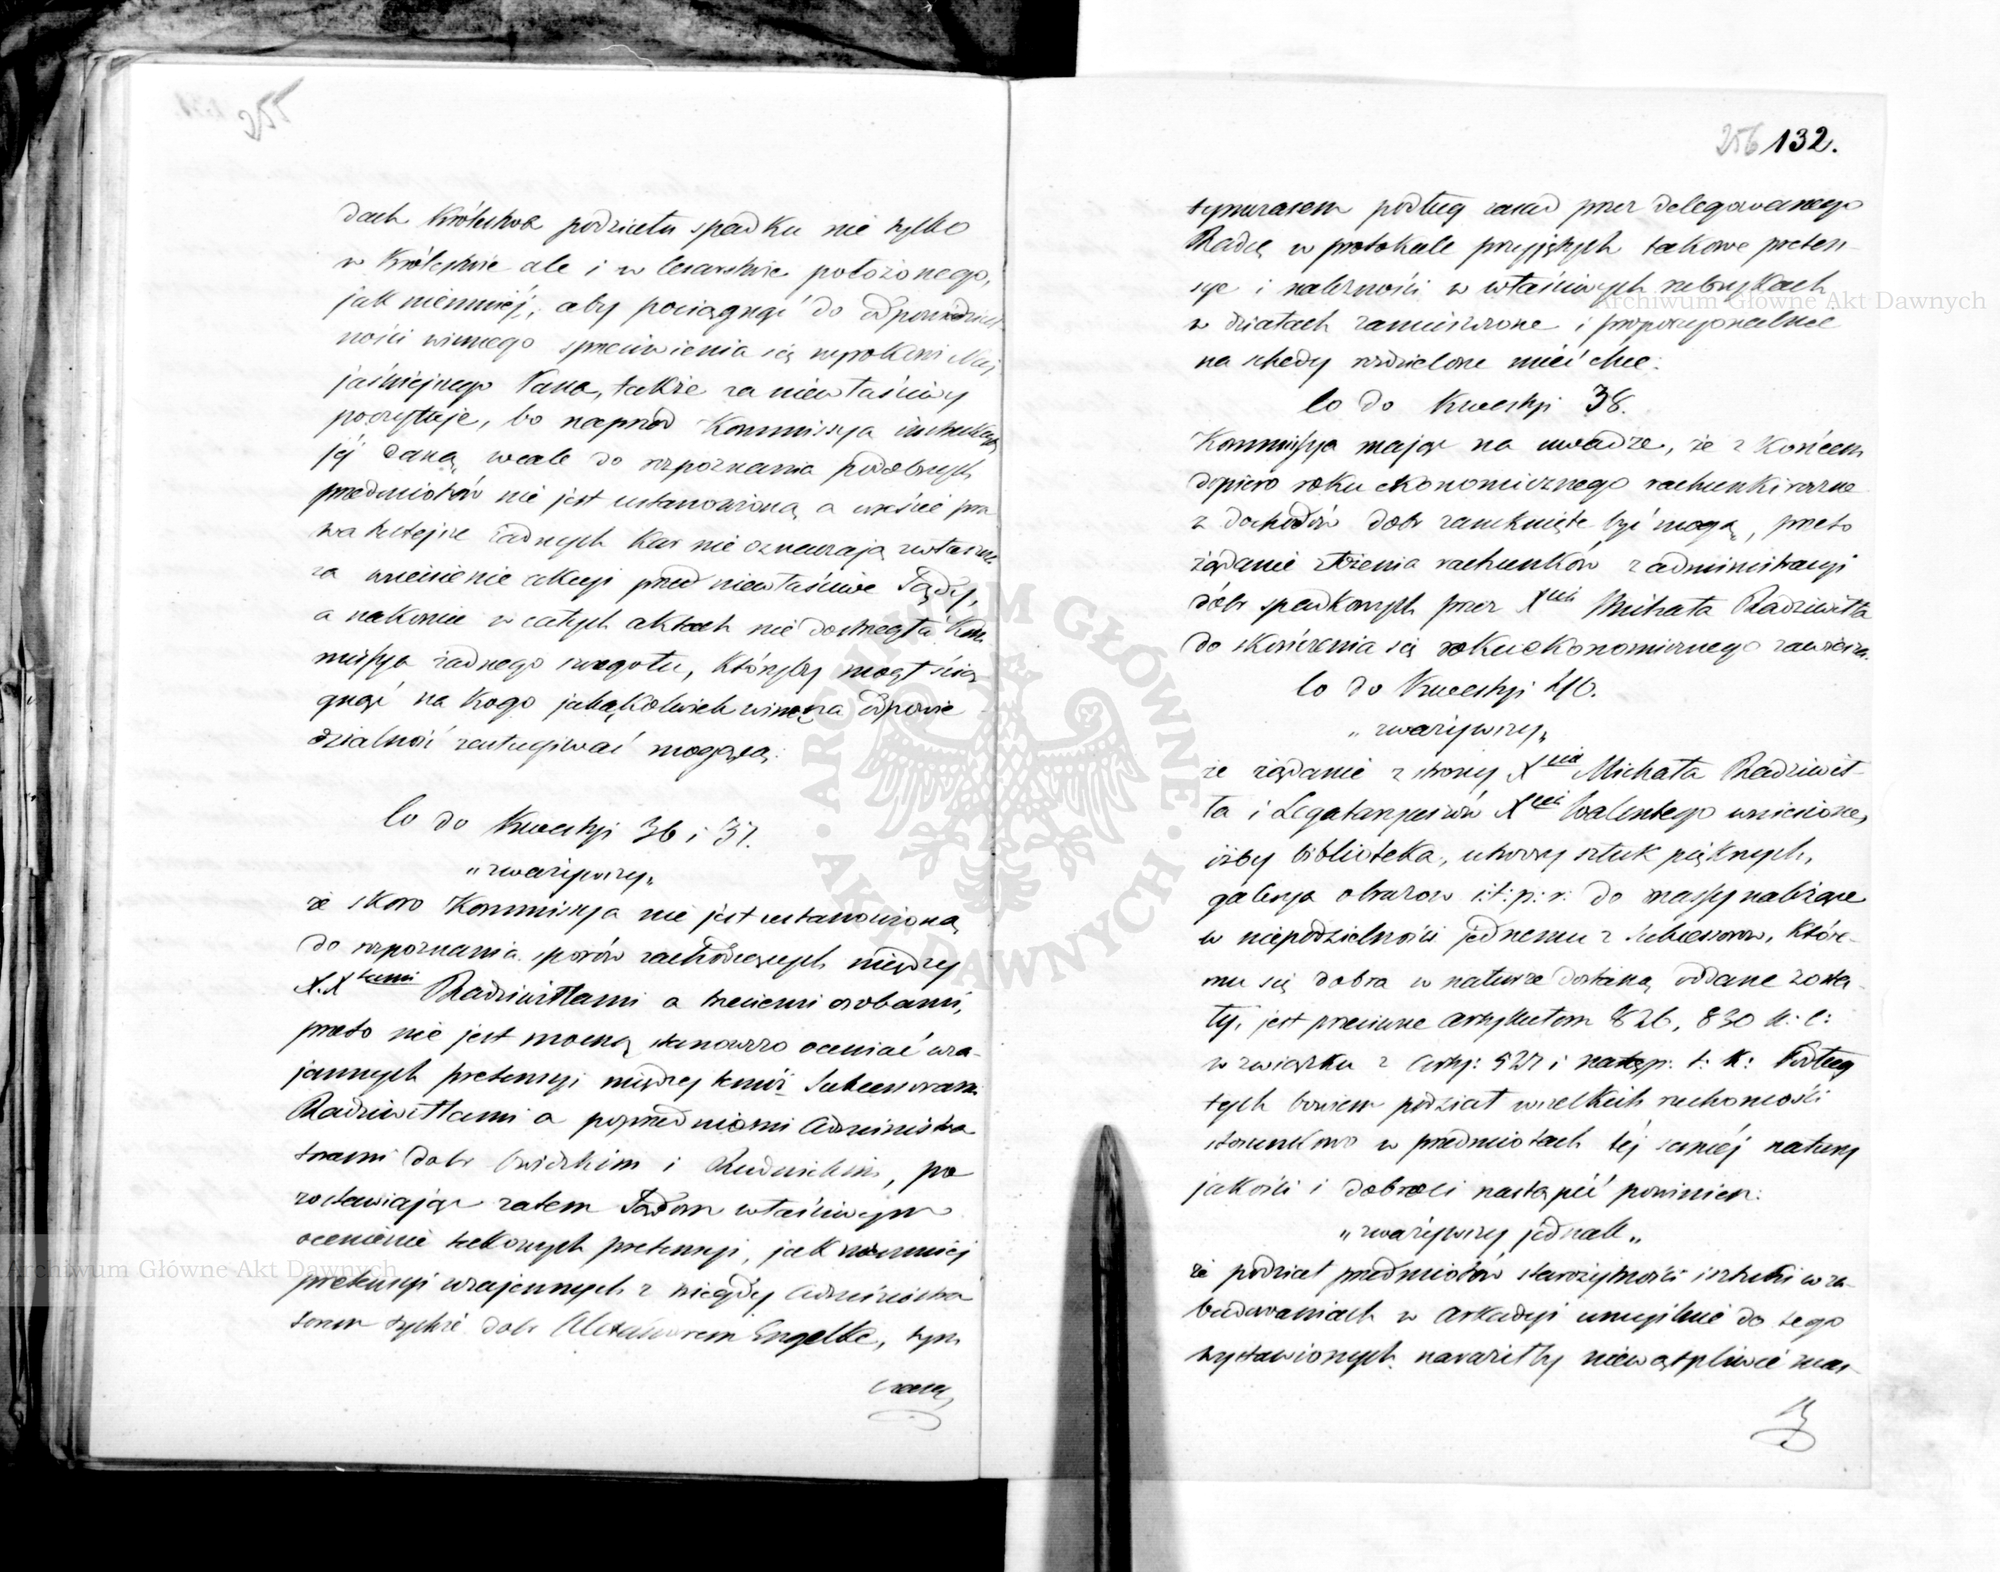 255
dach Królestwa podziału spadku nie tylko
w Królestwie ale i w Cesarstwie położonego,
jak niemniéj, aby pociągnąć do odpowiedzial
ności winnego sprzeciwienia się wyrokowi Naj
jaśniejszego Pana, także za niewłaściwy
poczytuje, bo naprzód Kommissya instrukcyą
jéj daną wcale do rozpoznania podobnych
przedmiotów nie jest ustanowioną a wreście pra
wa tutejsze żadnych kar nie oznaczają
za wniesienie akcyi przed niewłaściwe Sądy,
a nakoniec w całych aktach nie dostrzegła Kom
missya żadnego szczegółu, któryby mógł ścią
gnąć na kogo jakąkolwiek winę na odpowie
dzialność zasługiwać mogącą.
Co do Kwestyi 36 i 37.
„zważywszy„
że skoro Kommissya nie jest ustanowioną
do rozpoznania sporów zachodzących między
X.X tami Radziwiłłami a trzeciemi osobami,
przeto nie jest mocną stanowczo oceniać wza-
jemnych pretensyi między temiż Sukcessorami
Radziwiłłami a poprzedniemi Administra
torami dóbr i Rudnickim, po
zostawiając zatem Sądom właściwym
ocenienie takowych pretensyi, jak niemniej
pretensyi wzajemnych z niegdy Administra
torem tychże dóbr Alexandrem Engelke, tym
czasem
256 132.
tymczasem podług zasad przez delegowanego
Radcę w protokule przyjętych takowe preten-
sye i należności w właściwych rubrykach
w działach zamieszczone i proporcyonalnie
na schedy rozdzielone mieć chce.
Co do Kwestyi 38.
Kommissya mając na uwadze, że z końcem
dopiero roku ekonomicznego rachunki roczne
z dochodów dóbr zamknięte być mogą, przeto
żądanie złożenia rachunków z administracyi
dóbr spadkowych przez Xcia Michała Radziwiłła
do skończenia się roku ekonomicznego zawiesza.
Co do Kwestyi 40.
„zważywszy„
że żądanie z strony Xcia Michała Radziwił-
ła i Legataryuszów Xcia Walentego wniesione,
iżby biblioteka, utwory sztuk pięknych,
galerya obrazów i t: p: r: do massy należące
w niepodzielności jednemu z Sukcessorów, któré-
mu się dobra w naturze dostaną oddane zosta-
ły, jest przeciwne artykułom 826, 830 K: C:
w związku z arty: 527 i następ: t: K: Podług
tych bowiem podział wszelkich ruchomości
stosunkowo w przedmiotach téj saméj natury
jakości i dobroci nastąpić powinien.
„zważywszy jednak„
że podział przedmiotów starożytności i sztuki w za-
budowaniach w Arkadyi umyślnie do tego
wystawionych naraziłby niewątpliwie mas